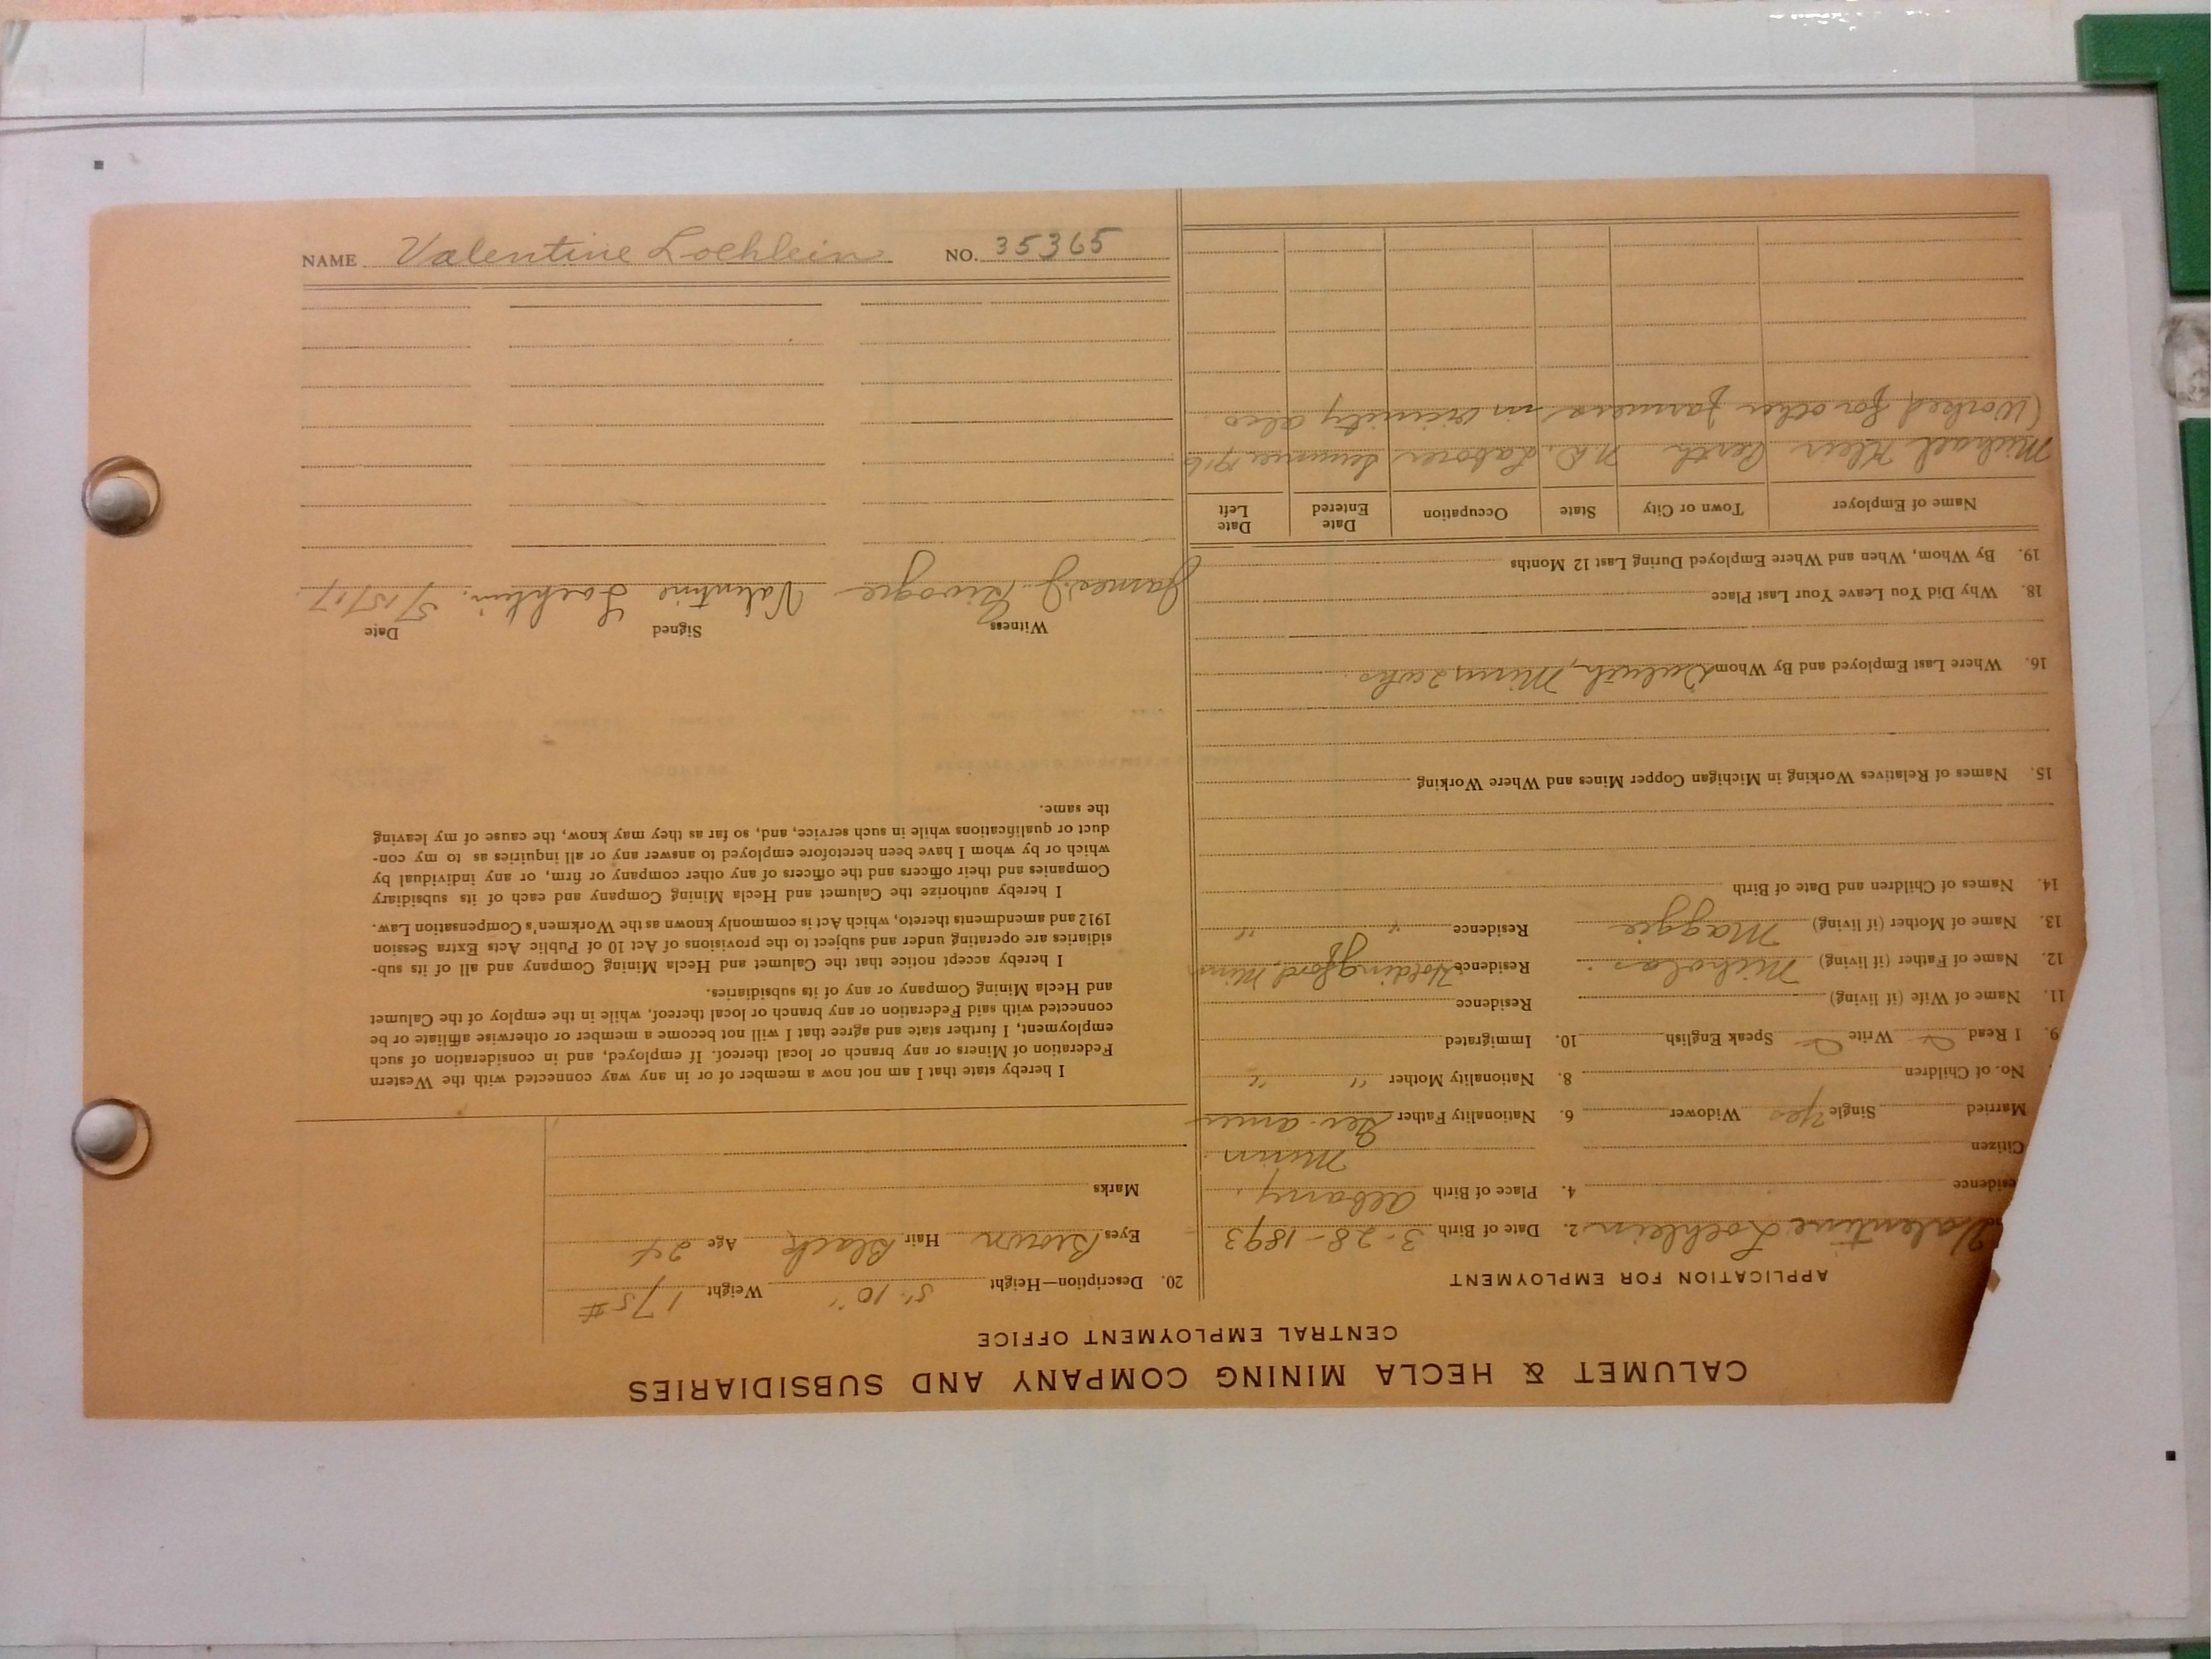 CALUMET & HECLA MINING COMPANY AND SUBSIDIARIES
CENTRAL EMPLOYMENT OFFICE
APPLICATION FOR EMPLOYMENT
Valentine Loehlein 2. Date of Birth 3-28-1893
esidence 4. Place of Birth Albany,
Citizen Minn
Married Single Yes Widower 6. Nationality Father Ger. amer
No. of Children 8. Nationality Mother " "
9. I Read Write Speak English 10. Immigrated
11. Name of Wife (if living) Residence
12. Name of Father (if living) Nicholas Residence Holdingford, Minn
13. Name of Mother (if living) Maggie Residence " "
14. Names of Children and Date of Birth
15. Names of Relatives Working in Michigan Copper Mines and Where Working
16. Where Last Employed and By Whom Duluth, Minn 2 wks.
18. Why Did You Leave Your Last Place
19. By Whom, When and Where Employed During Last 12 Months
Name of Employer Town or City State Occupation Date Entered Date Left
Michael Klein Perth N.D. Laborer Summer 1916
(Worked for other farmers in vicinity also
20. Description—Height 5' 10" Weight 175 #
Eyes Brown Hair Black Age 24
Marks
I hereby state that I am not now a member of or in any way connected with the Western
Federation of Miners or any branch or local thereof. If employed, and in consideration of such
employment, I further state and agree that I will not become a member or otherwise affiliate or be
connected with said Federation or any branch or local thereof, while in the employ of the Calumet
and Hecla Mining Company or any of its subsidiaries.
I hereby accept notice that the Calumet and Hecla Mining Company and all of its sub-
sidiaries are operating under and subject to the provisions of Act 10 of Public Acts Extra Session
1912 and amendments thereto, which Act is commonly known as the Workmen's Compensation Law.
I hereby authorize the Calumet and Hecla Mining Company and each of its subsidiary
Companies and their officers and the officers of any other company or firm, or any individual by
which or by whom I have been heretofore employed to answer any or all inquiries as to my con-
duct or qualifications while in such service, and, so far as they may know, the cause of my leaving
the same.
Witness Signed Date
James J. Valentine Loehlein. 5/15/17.
NAME Valentine Loehlein NO. 35365